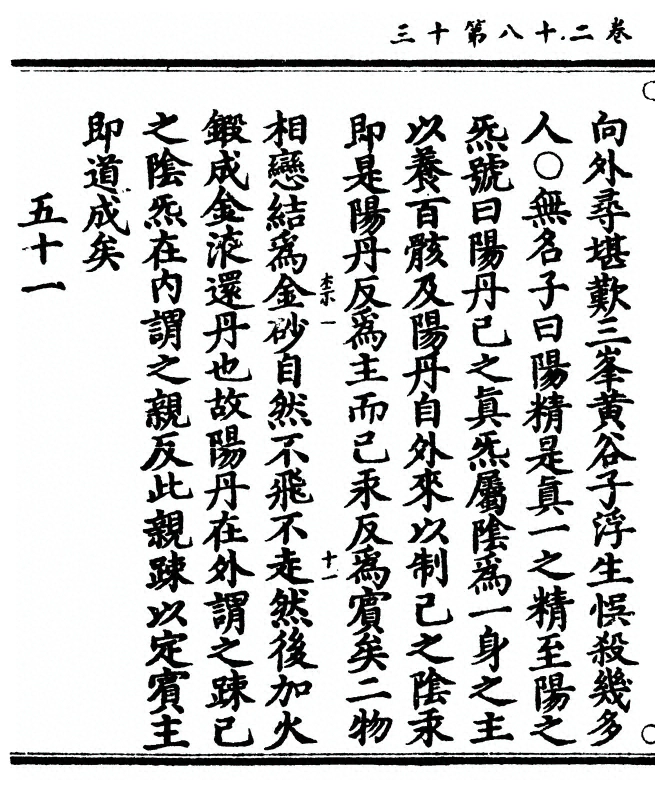 三十第八十二卷
向外尋堪歎三峯黃谷子浮生悞殺幾多
人○無名子曰陽精是眞一之精至陽之
炁號曰陽丹己之眞炁屬陰爲一身之主
以養百骸及陽丹自外來以制己之陰汞
即是陽丹反爲主而己汞反爲賓矣二物
相戀結爲金砂自然不飛不走然後加火
本示一
十一
鍛成金液還丹也故陽丹在外謂之踈己
之陰炁在内謂之親反此親踈以定賓主
即道成矣
五十一